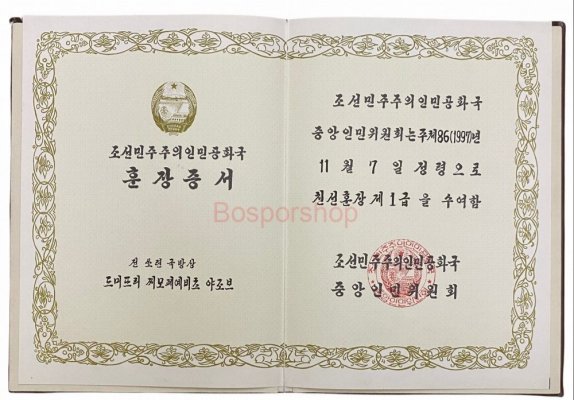 조선민주주의인민공화국
훈장증서
전 쏘련 국방상
드미뜨리 찌모페예비츠 야조브
조선민주주의인민공화국
중앙인민위원회는 주체86(1997)년
11월 7일 정령으로
친선훈장 제1급을 수여함
조선민주주의인민공화국
중앙인민위원회
Bosporshop